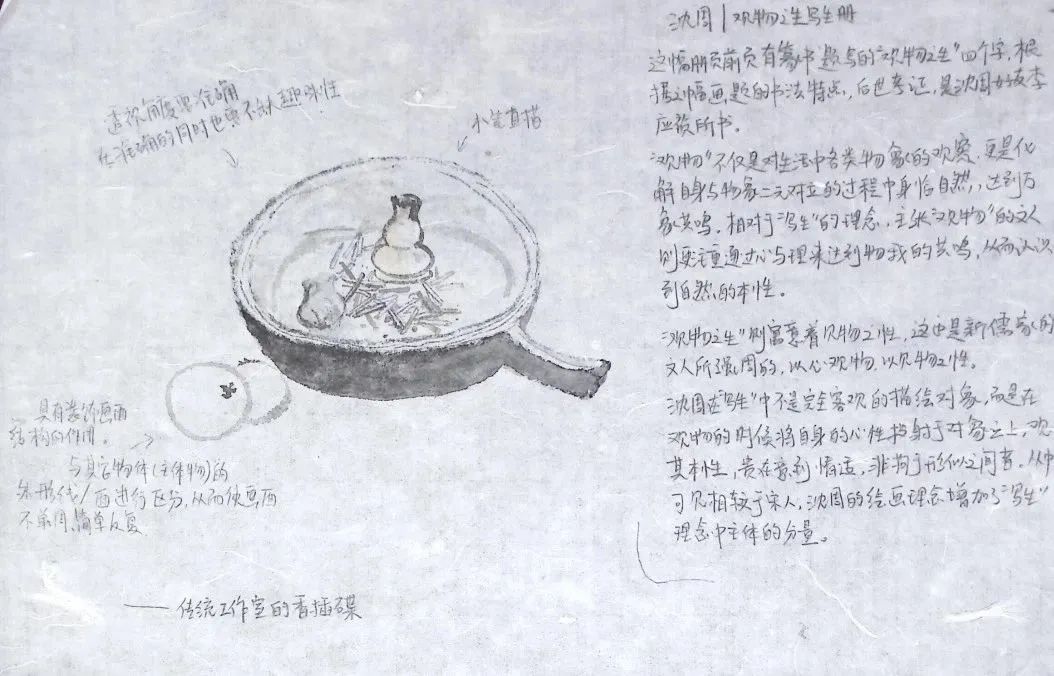 透视角度要准确
在准确的同时也要不缺趣味性
小笔直描
具有装饰画面
结构的作用。
与其它物体(主体物)的
外形线/面进行区分,从而使画面
不单调、简单反复
—— 传统工作室的香插碟
沈周|观物之生写生册
这幅册页前页有篆书题写的"观物之生"四个字,根
据这幅画题的书法特点,后世考证,是沈周好友李
应祯所书。
"观物"不仅是对生活中各类物象的观察,更是化
解自身与物象二元对立的过程中身临自然,达到万
象共鸣。相对于"写生"的理念,主张"观物"的文人
则更注重通过心与理来达到物我的共鸣,从而认识
到自然的本性。
"观物之生"则寓意着见物之性,这也是新儒家的
文人所强调的,以心观物,以见物之性。
沈周在"写生"中不是完全客观的描绘对象,而是在
观物的时候将自身的心性投射于对象之上,观
其本性,贵在意到情适,非拘于形似之间者。从中
可见相较于宋人,沈周的绘画理念增加了"写生"
理念中主体的分量。